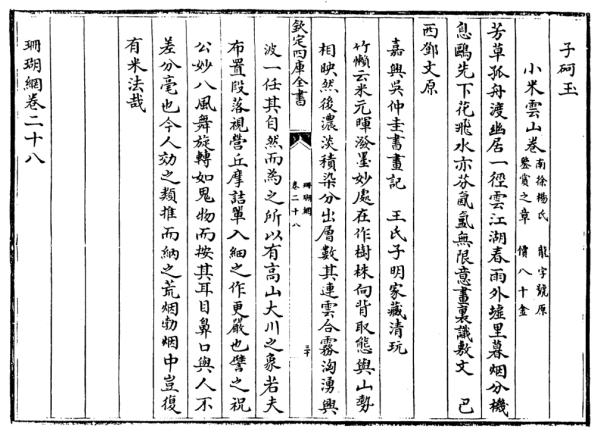 子砢玉
小米雲山卷
南徐楊氏 龍字號原
鑒賞之章 價八十金
芳草孤舟渡幽居一徑雲江湖春雨外墟里暮烟分機
息鷗先下花飛水亦芬氤氳無限意畫裏識敷文 巴
西鄧文原
嘉興吳仲圭書畫記 王氏子明家藏清玩
竹懶云米元暉潑墨妙處在作樹株向背取態與山勢
相映然後濃淡積染分出層數其連雲合霧洶湧興
欽定四庫全書
珊瑚網
卷二十八
三十
波一任其自然而為之所以有高山大川之象若夫
布置段落視營丘摩詰單入細之作更嚴也譬之祝
公妙八風舞旋轉如鬼物而按其耳目鼻口與人不
差分毫也今人効之類推而納之荒烟勃烟中豈復
有米法哉
珊瑚網卷二十八